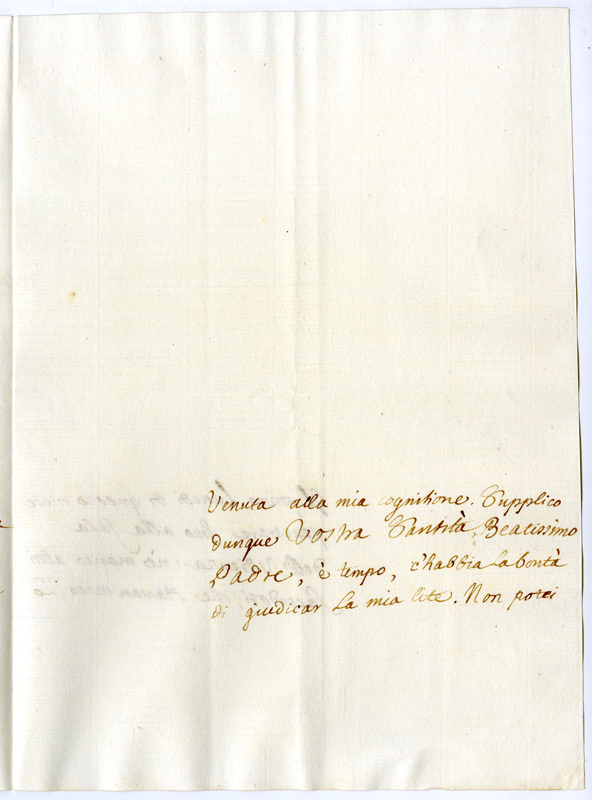 Venuta alla mia cognitione. Supplico
dunque Vostra Santità, Beatissimo
Padre, è tempo, c'habbia La bontà
di giudicar La mia lite. Non potei